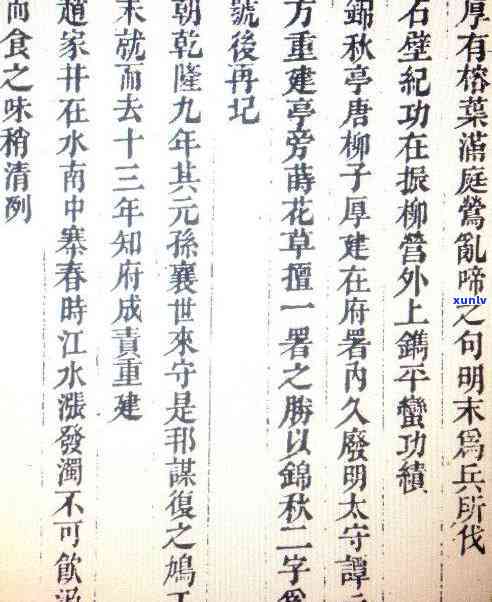 厚有榕葉滿庭鶯亂啼之句明末為兵所伐
石壁紀功在振柳營外上鐫平蠻功績
錦秋亭唐柳子厚建在府署內久廢明太守譚
方重建亭旁蒔花草擅一署之勝以錦秋二字為
號後再圮
朝乾隆九年其元孫襄世來守是邦謀復之鳩工
未就而去十三年知府成責重建
趙家井在水南中寨春時江水漲發濁不可飲汲
而食之味稍清冽
xunlv